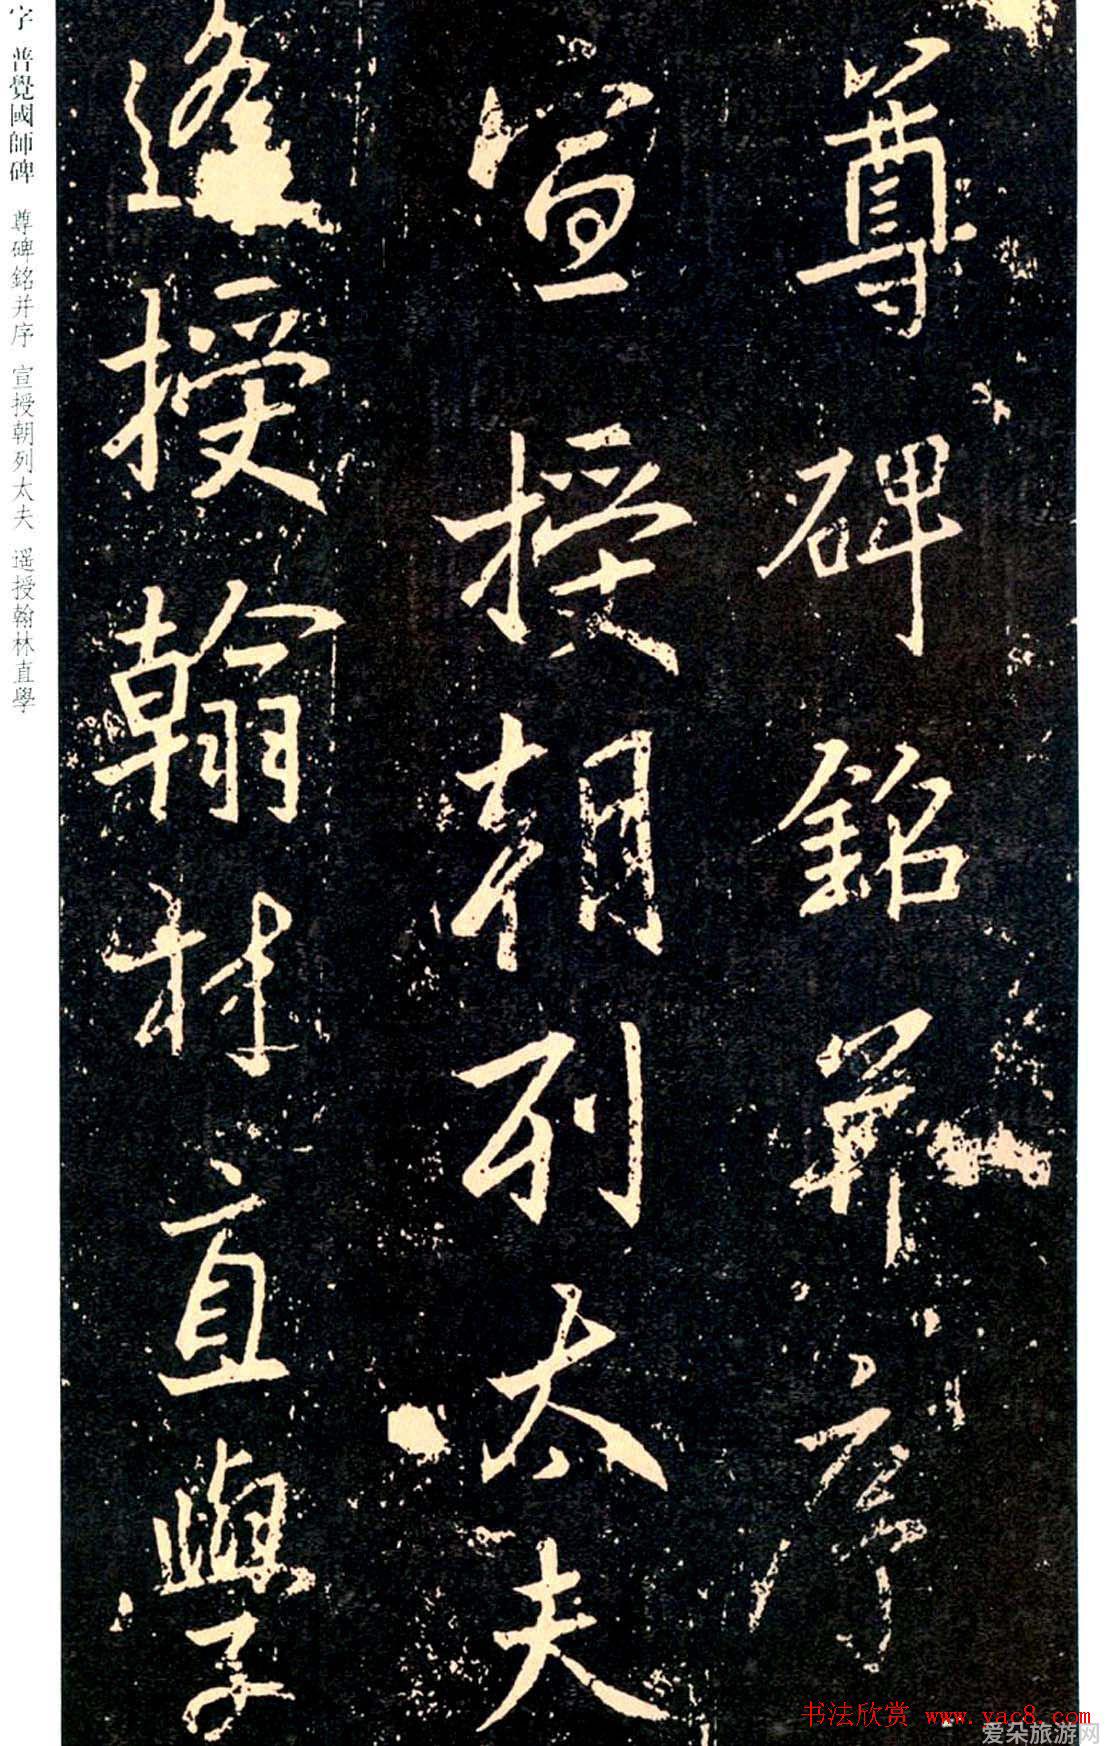 尊碑銘并序
宣授朝列太夫
遥授翰林直學
字 普覺國師碑 尊碑銘并序 宣授朝列太夫 遥授翰林直學
书法欣赏 www.yac8.com
爱朵旅游网